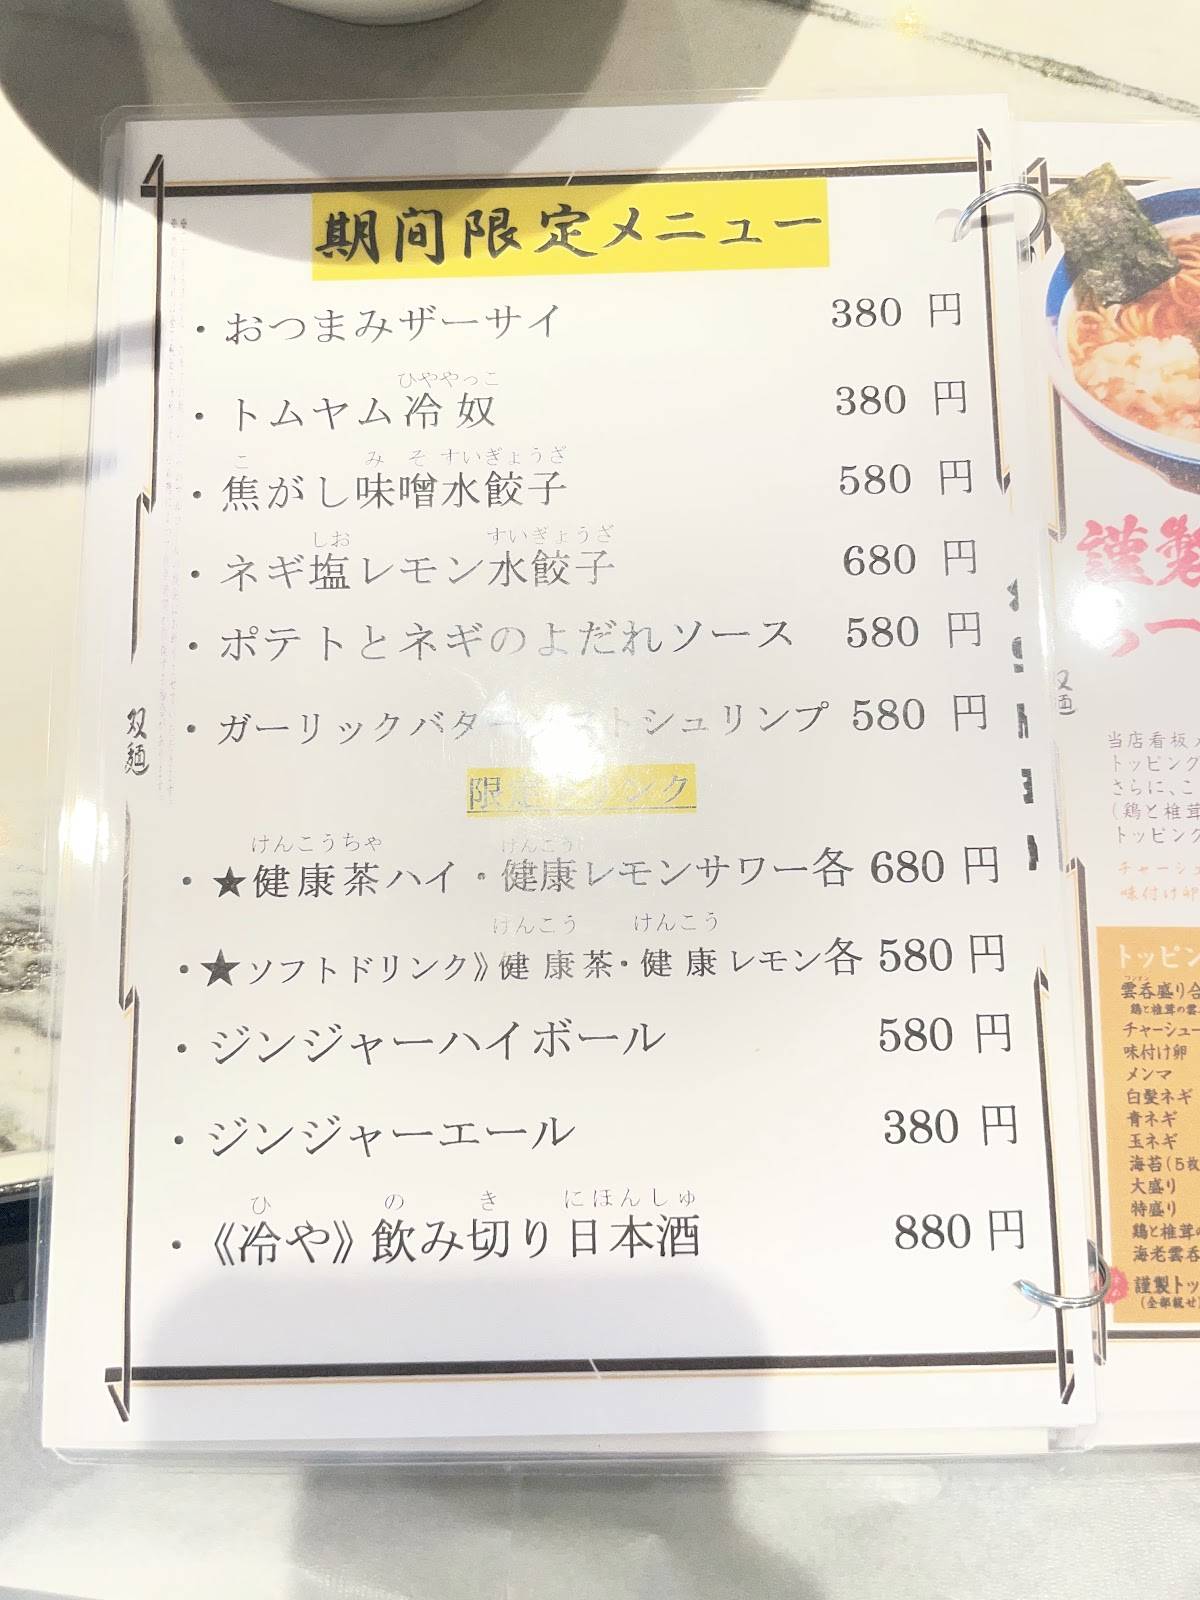 期間限定メニュー
・おつまみザーサイ 380 円
ひややっこ
・トムヤム冷奴 380 円
こ み そ すいぎょうざ
・焦がし味噌水餃子 580 円
しお すいぎょうざ
・ネギ塩レモン水餃子 680 円
・ポテトとネギのよだれソース 580 円
・ガーリックバター トシュリンプ 580 円
限定 ンク
けんこうちゃ けんこう
・★健康茶ハイ・健康レモンサワー各 680 円
けんこう けんこう
・★ソフトドリンク》健康茶・健康レモン各 580 円
・ジンジャーハイボール 580 円
・ジンジャーエール 380 円
ひ の き にほんしゅ
・《冷や》飲み切り日本酒 880 円
双麺
謹製
らー
当店看板
トッピング
さらに、こ
(鶏と椎茸
トッピング
チャーシュ
味付け卵
トッピン
ワンタン
雲呑盛り合
鶏と椎茸の雲
チャーシュー
味付け卵
メンマ
白髪ネギ
青ネギ
玉ネギ
海苔(5枚
大盛り
特盛り
鶏と椎茸の
海老雲呑
謹製トッ
(全部載せ